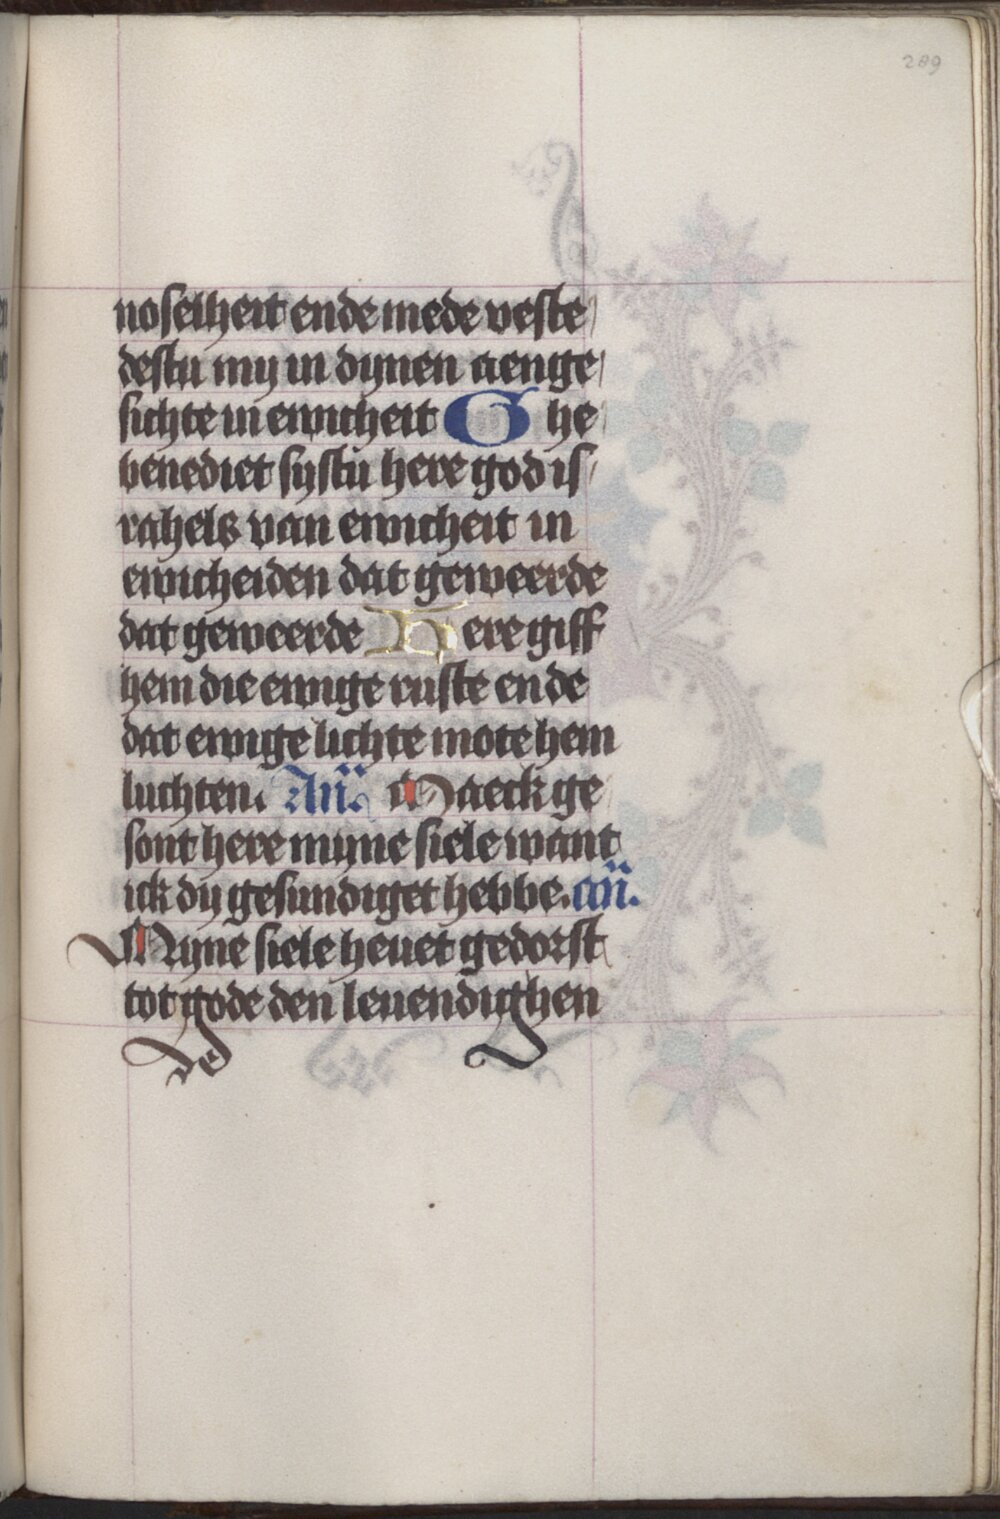 289
noselheit ende mede veste
destu my in dynen aenge
sichte in ewicheit Ghe
benediet systu here god is
rahels van ewicheit in
ewicheiden dat geweerde
dat geweerde Here giff
hem die ewige ruste ende
dat ewige lichte mote hem
luchten. An̄. Maeck ge
sont here myne siele want
ick dy gesundiget hebbe. an̄.
Myne siele heuet gedorst
tot gode den leuendighen